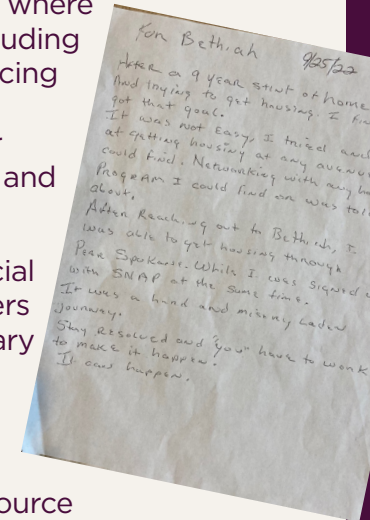 where
uding
cing
and
cial
ers
ary
ource
For Bethiah
9/25/22
After a 9 year stint of home
And trying to get housing. I fin
got that goal.
It was not Easy, I tried and
at getting housing at any avenu
could find. Networking with any ho
Program I could find or was tol
about.
After Reaching out to Bethiah, I
was able to get housing through
Peer Spokane. While I was signed u
with SNAP at the same time.
It was a hard and misery laden
Journey.
Stay Resolved and "you" have to work
to make it happen.
It can happen.